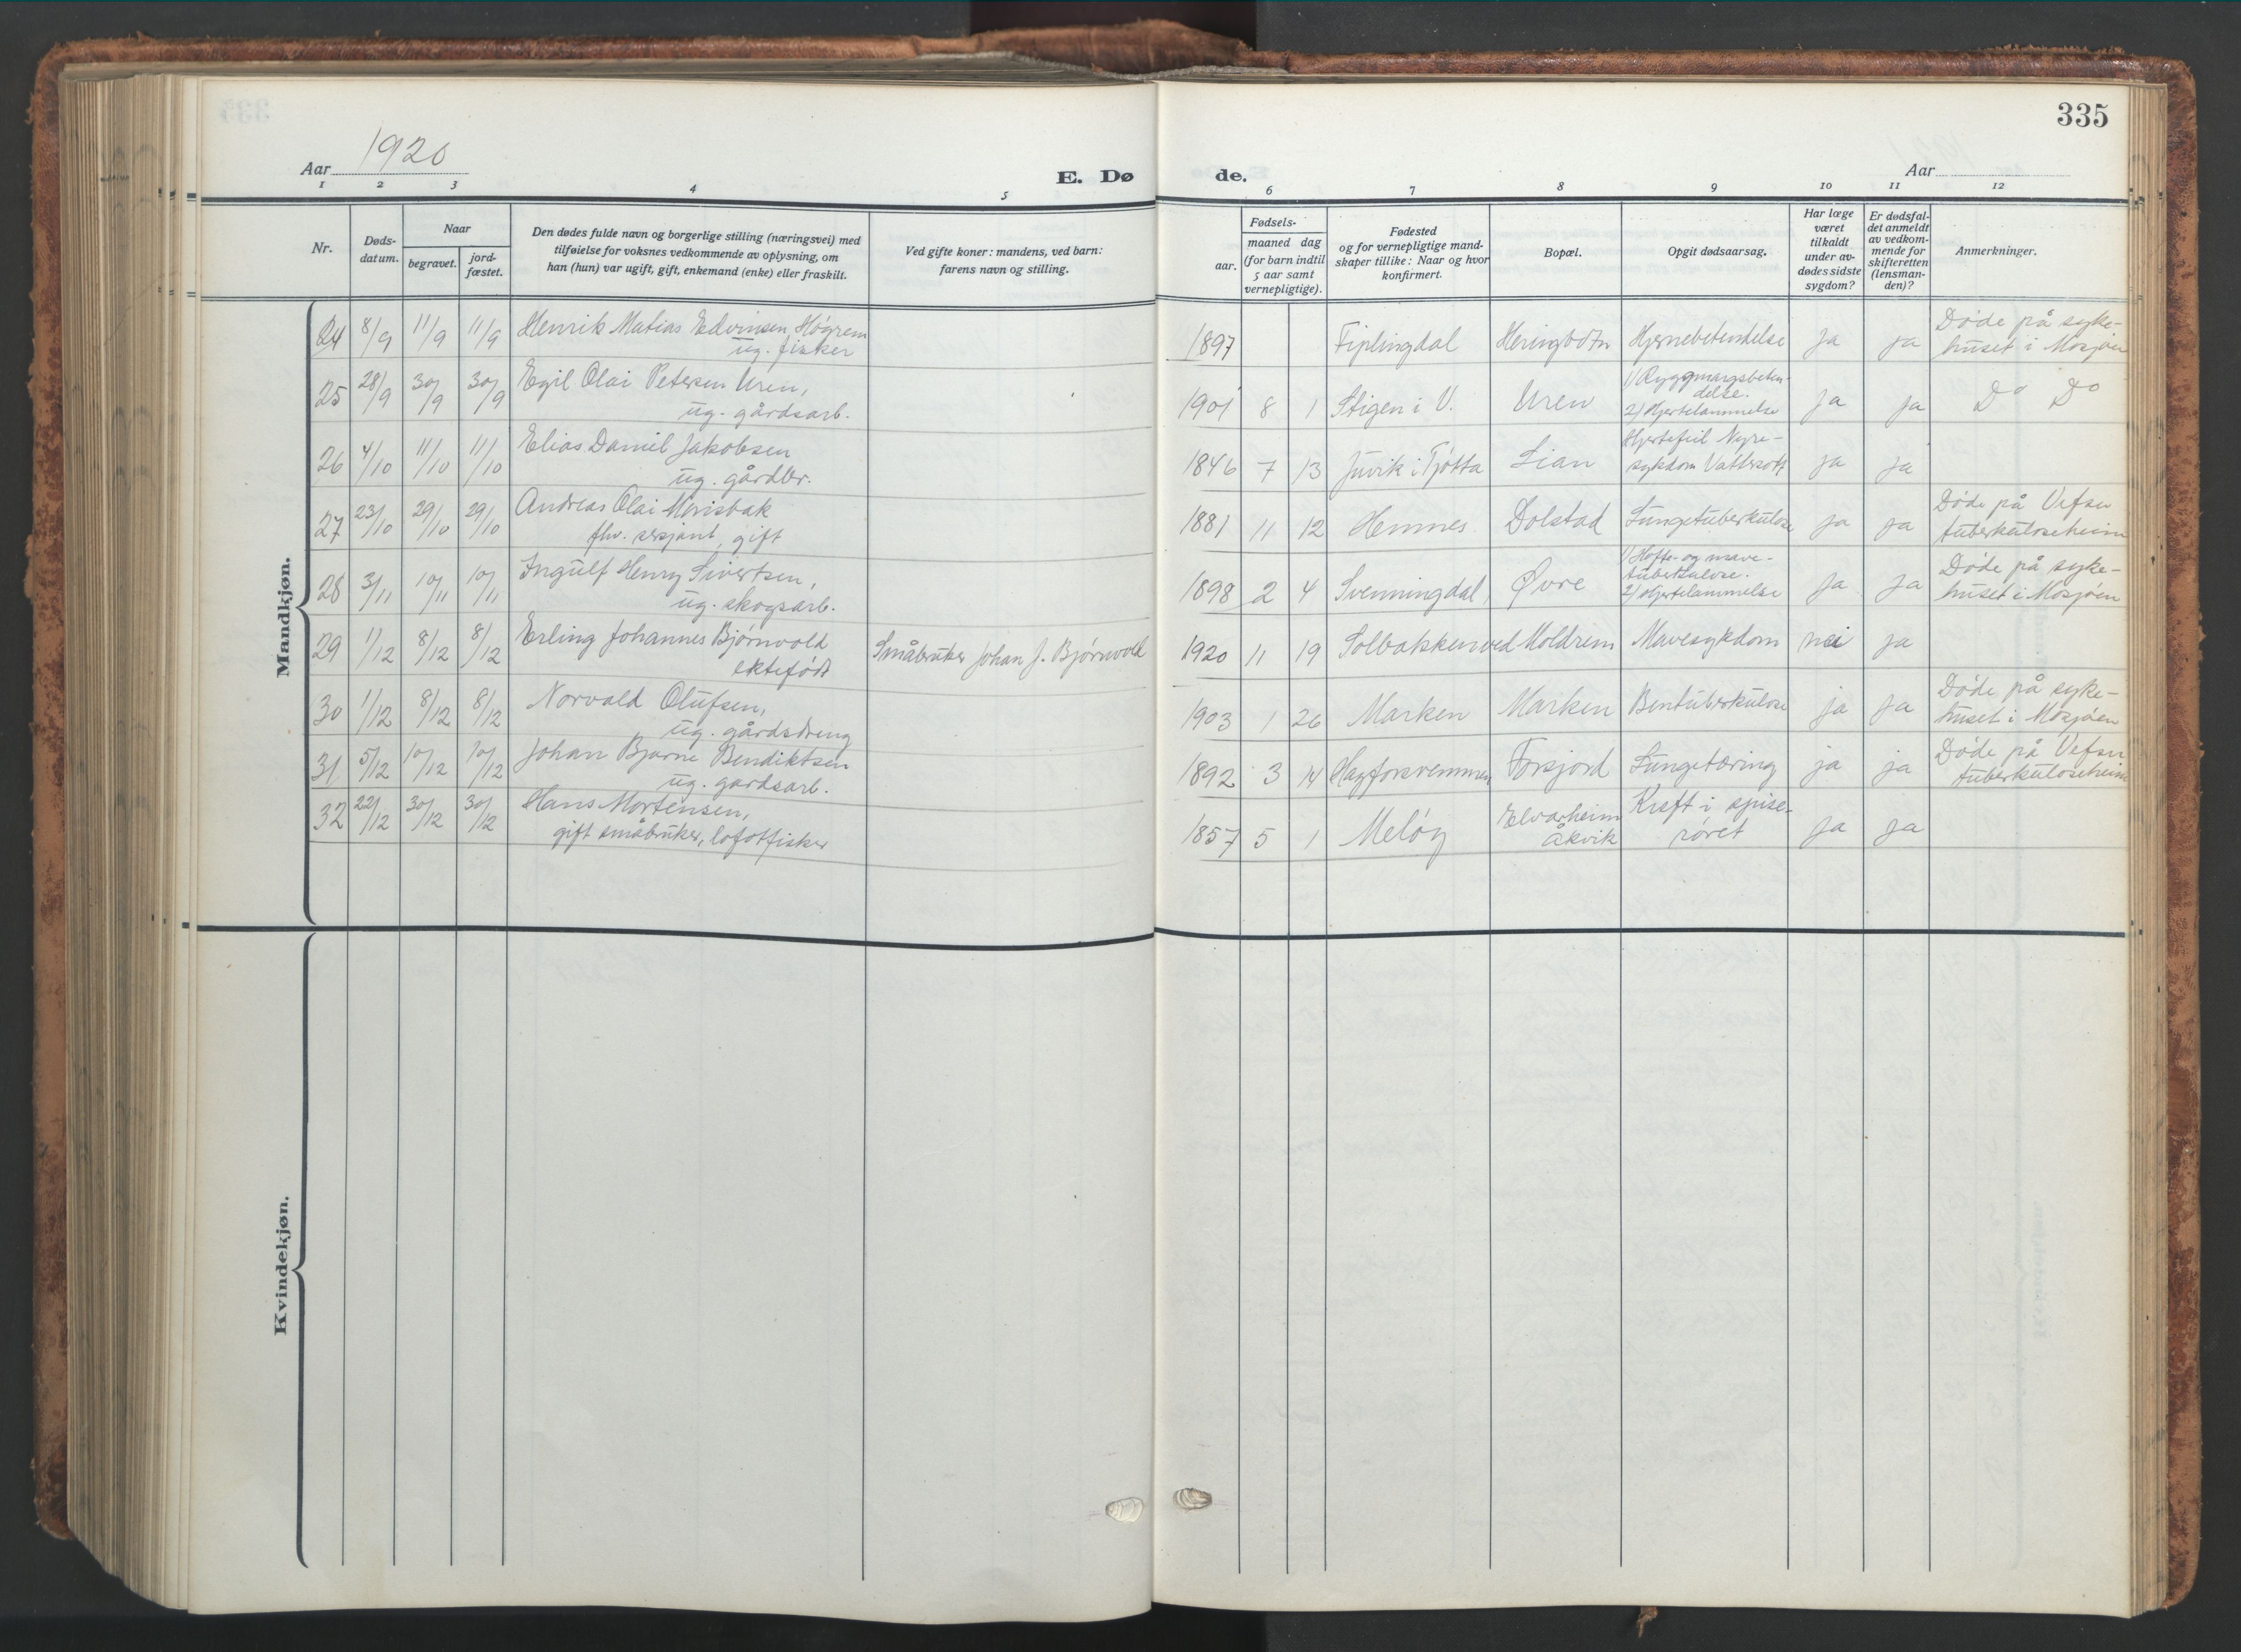 335
Aar 1920
E. Dø
de.
Aar
1 2 3 4 5 6 7 8 9 10 11 12
Nr.
Døds-
datum.
Naar
begravet.
jord-
fæstet.
Den dødes fulde navn og borgerlige stilling (næringsvei) med
tilføielse for voksnes vedkommende av oplysning, om
han (hun) var ugift, gift, enkemand (enke) eller fraskilt.
Ved gifte koner: mandens, ved barn:
farens navn og stilling.
Fødsels-
aar.
maaned dag
(for barn indtil
5 aar samt
vernepligtige).
Fødested
og for vernepligtige mand-
skaper tillike: Naar og hvor
konfirmert.
Bopæl.
Opgit dødsaarsag.
Har læge
været
tilkaldt
under av-
dødes sidste
sygdom?
Er dødsfal-
det anmeldt
av vedkom-
mende for
skifteretten
(lensman-
den)?
Anmerkninger.
Mandkjøn.
24 8/9 11/9 11/9 Henrik Matias Edvinsen, Högrem
ug. fisker
1897 Fiplingdal Heringbotn Hjernebetendelse ja ja Døde på syke-
huset i Mosjøen
25 28/9 30/9 30/9 Egil Olai Petersen Uren,
ug. gårdsarb.
1901 8 1 Stigen i V. Uren 1) Ryggmargsbeten-
delse.
2) Hjertelammelse ja ja Do Do
26 4/10 11/10 11/10 Elias Daniel Jakobsen
ug. gårdbr.
1846 7 13 Juvik i Tjøtta Lian Hjertefeil Nyre-
sykdom Vattersott ja ja
27 23/10 29/10 29/10 Andreas Olai Movisbak
fhv. sersjant, gift
1881 11 12 Hemnes. Dolstad Lungetuberkulose ja ja Døde på Vefsn
tuberkuloseheim
28 3/11 10/11 10/11 Ingulf Henry Sivertsen,
ug. skogsarb.
1898 2 4 Svenningdal, Øvre 1) Hofte- og mave-
tuberkulose.
2) Hjertelammelse ja ja Døde på syke-
huset i Mosjøen
29 1/12 8/12 8/12 Erling Johannes Bjørnvold
ektefødt
Småbruker Johan J. Bjørnvold
1920 11 19 Solbakken ved Moldrem Mavesykdom nei ja
30 1/12 8/12 8/12 Norvald Olufsen,
ug. gårdsdreng
1903 1 26 Marken Marken Bentuberkulose ja ja Døde på syke-
huset i Mosjøen
31. 5/12 10/12 10/12 Johan Bjarne Bendiktsen
ug. gardsarb.
1892 3 14 Forsjord Lungetæring ja ja Døde på Vefsn
tuberkuloseheim
32 22/12 30/12 30/12 Hans Mortensen,
gift småbruker, lofotfisker
1857 5 1 Meløy Elvarheim
Åkvik
Kræft i spise-
røret ja ja
Kvindekjøn.